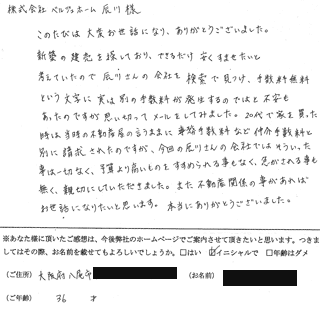 株式会社 ベルヴィホーム 辰川 様
このたびは 大変お世話になり、ありがとうございました。
新築の建売を探しており、できるだけ 安くすませたいと
考えていたので 辰川さんの会社を 検索で見つけ、手数料無料
という文字に 実は別の手数料が発生するのではと不安も
あったのですが 思い切って メールをしてみました。20代で家を買った
時は 当時の不動産屋の言うままに 事務手数料など 仲介手数料と
別に請求されたのですが、今回の辰川さんの会社ではそういった
事は一切なく、予算より高いものをすすめられる事もなく、急がされる事も
無く、親切にしていただきました。また 不動産関係の事があれば
お世話になりたいと思います。本当にありがとうございました。
※あなた様に頂いたご感想は、今後弊社のホームページでご案内させて頂きたいと思います。つきま
してはその際、お名前を載せてもよろしいでしょうか。□はい ☑イニシャルで □年齢はダメ
(ご住所) 大阪府八尾市 (お名前)
(ご年齢) 36 才